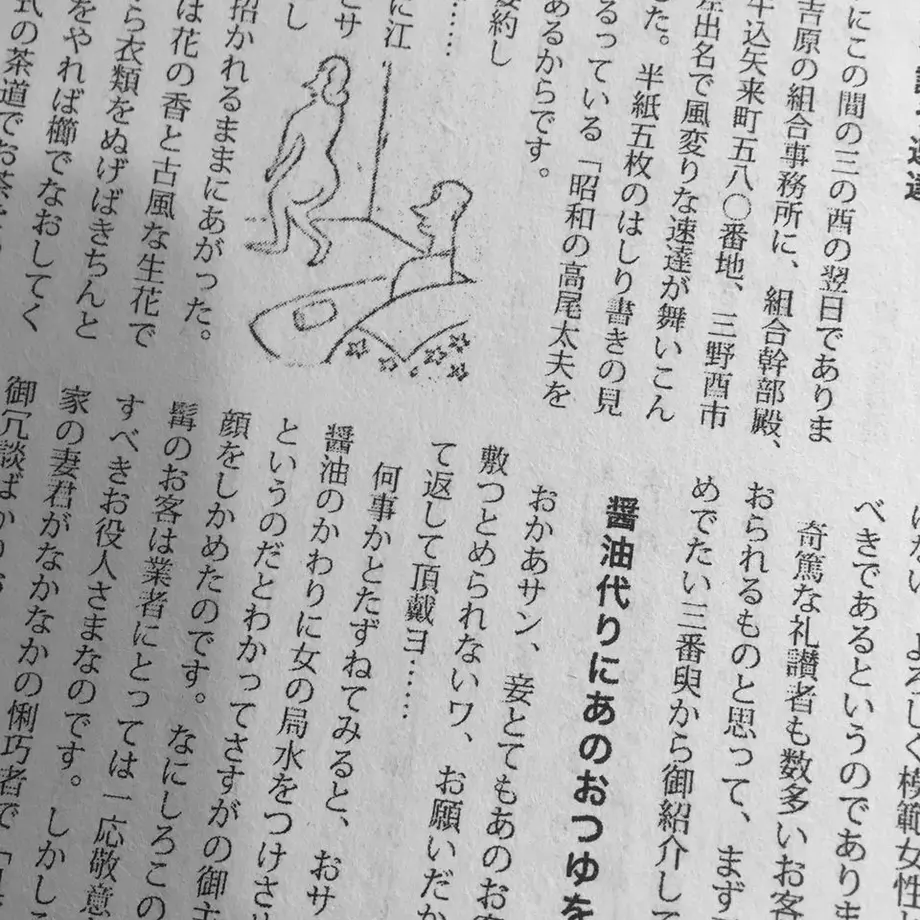 速達
にこの間の三の酉の翌日でありま
吉原の組合事務所に、組合幹部殿、
牛込矢来町五八〇番地、三野酉市
差出名で風変りな速達が舞いこん
した。半紙五枚のはしり書きの見
るっている「昭和の高尾太夫を
あるからです。
要約し
……
に江
とサ
し
招かれるままにあがった。
は花の香と古風な生花で
ら衣類をぬげばきちんと
をやれば櫛でなおしてく
式の茶道でお茶
よろしく模範女性
べきであるというのでありま
奇篤な礼讃者も数多いお客
おられるものと思って、まず
めでたい三番臾から御紹介して
醤油代りにあのおつゆを
おかあサン、妾とてもあのお客
敷つとめられないワ、お願いだか
て返して頂戴ヨ……
何事かとたずねてみると、おサ
醤油のかわりに女の局水をつけさせ
というのだとわかってさすがの御主
顔をしかめたのです。なにしろこの
髯のお客は業者にとっては一応敬意
すべきお役人さまなのです。しかし
家の妻君がなかなかの悧巧者で「
御冗談ばかり